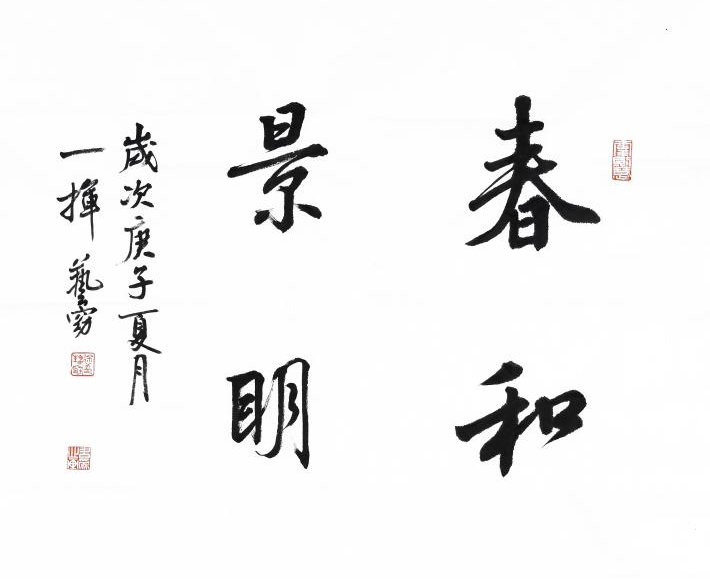 春和
景明
歲次庚子夏月
一揮 藝窮